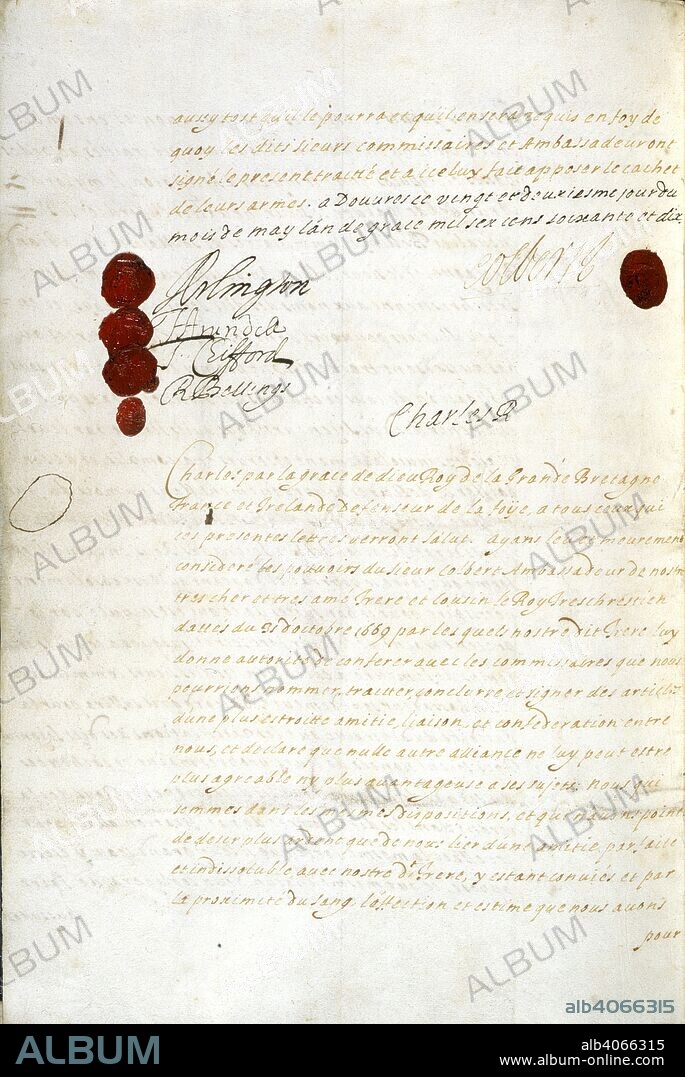 aussy tost qu'il le pourra et qu'il en sera requis en foy de
quoy les dits sieurs commissaires et Ambassadeur ont
signé le present traicté et a iceluy fait apposer le cachet
de leurs armes. a Douvres ce vingt et deuxiesme jour du
mois de may l'an de grace mil six cens soixante et dix
Arlington
Colbert
T Arundell
T. Clifford
R Bellings
Charles R
Charles par la grace de dieu Roy de la Grande Bretagne
France et Irelande Defenseur de la foye, a tous ceux qui
ces presentes lettres verront Salut. ayans meurement
consideré les pouvoirs du sieur Colbert Ambassadeur de nostre
tres cher et tres amé frere et Cousin le Roy Treschrestien
dattes du 31 d'octobre 1669 par les quels nostre dit frere luy
donne autorité de conferer avec les commissaires que nous
pourrions nommer, traitter, conclurre et signer des articles
d'une plus estroitte amitie, liaison, et confederation entre
nous, et declare que nulle autre alliance ne luy peut estre
plus agreable ny plus avantageuse a ses sujets, nous qui
sommes dans les mesmes dispositions, et qui n'avons point
de desir plus ardent que de nous lier d'une amitie parfaite
et indissoluble avec nostre dt frere, y estant conviés et par
la proximité du sang, l'affection et estime que nous avons
pour
alb4066315
ALBUM
alb4066315
www.album-online.com